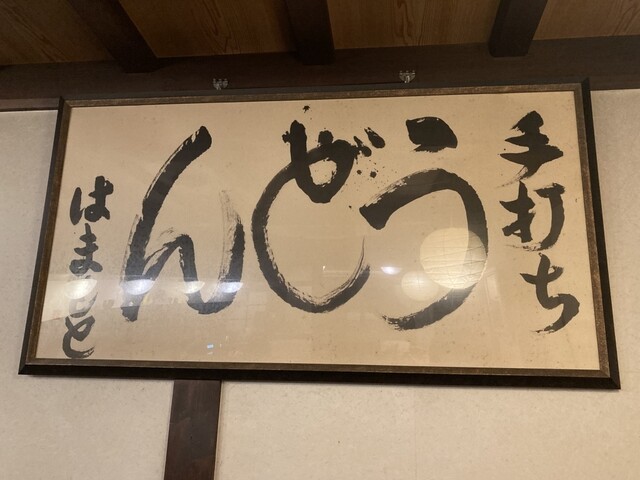 手打ち
うどん
はまもと